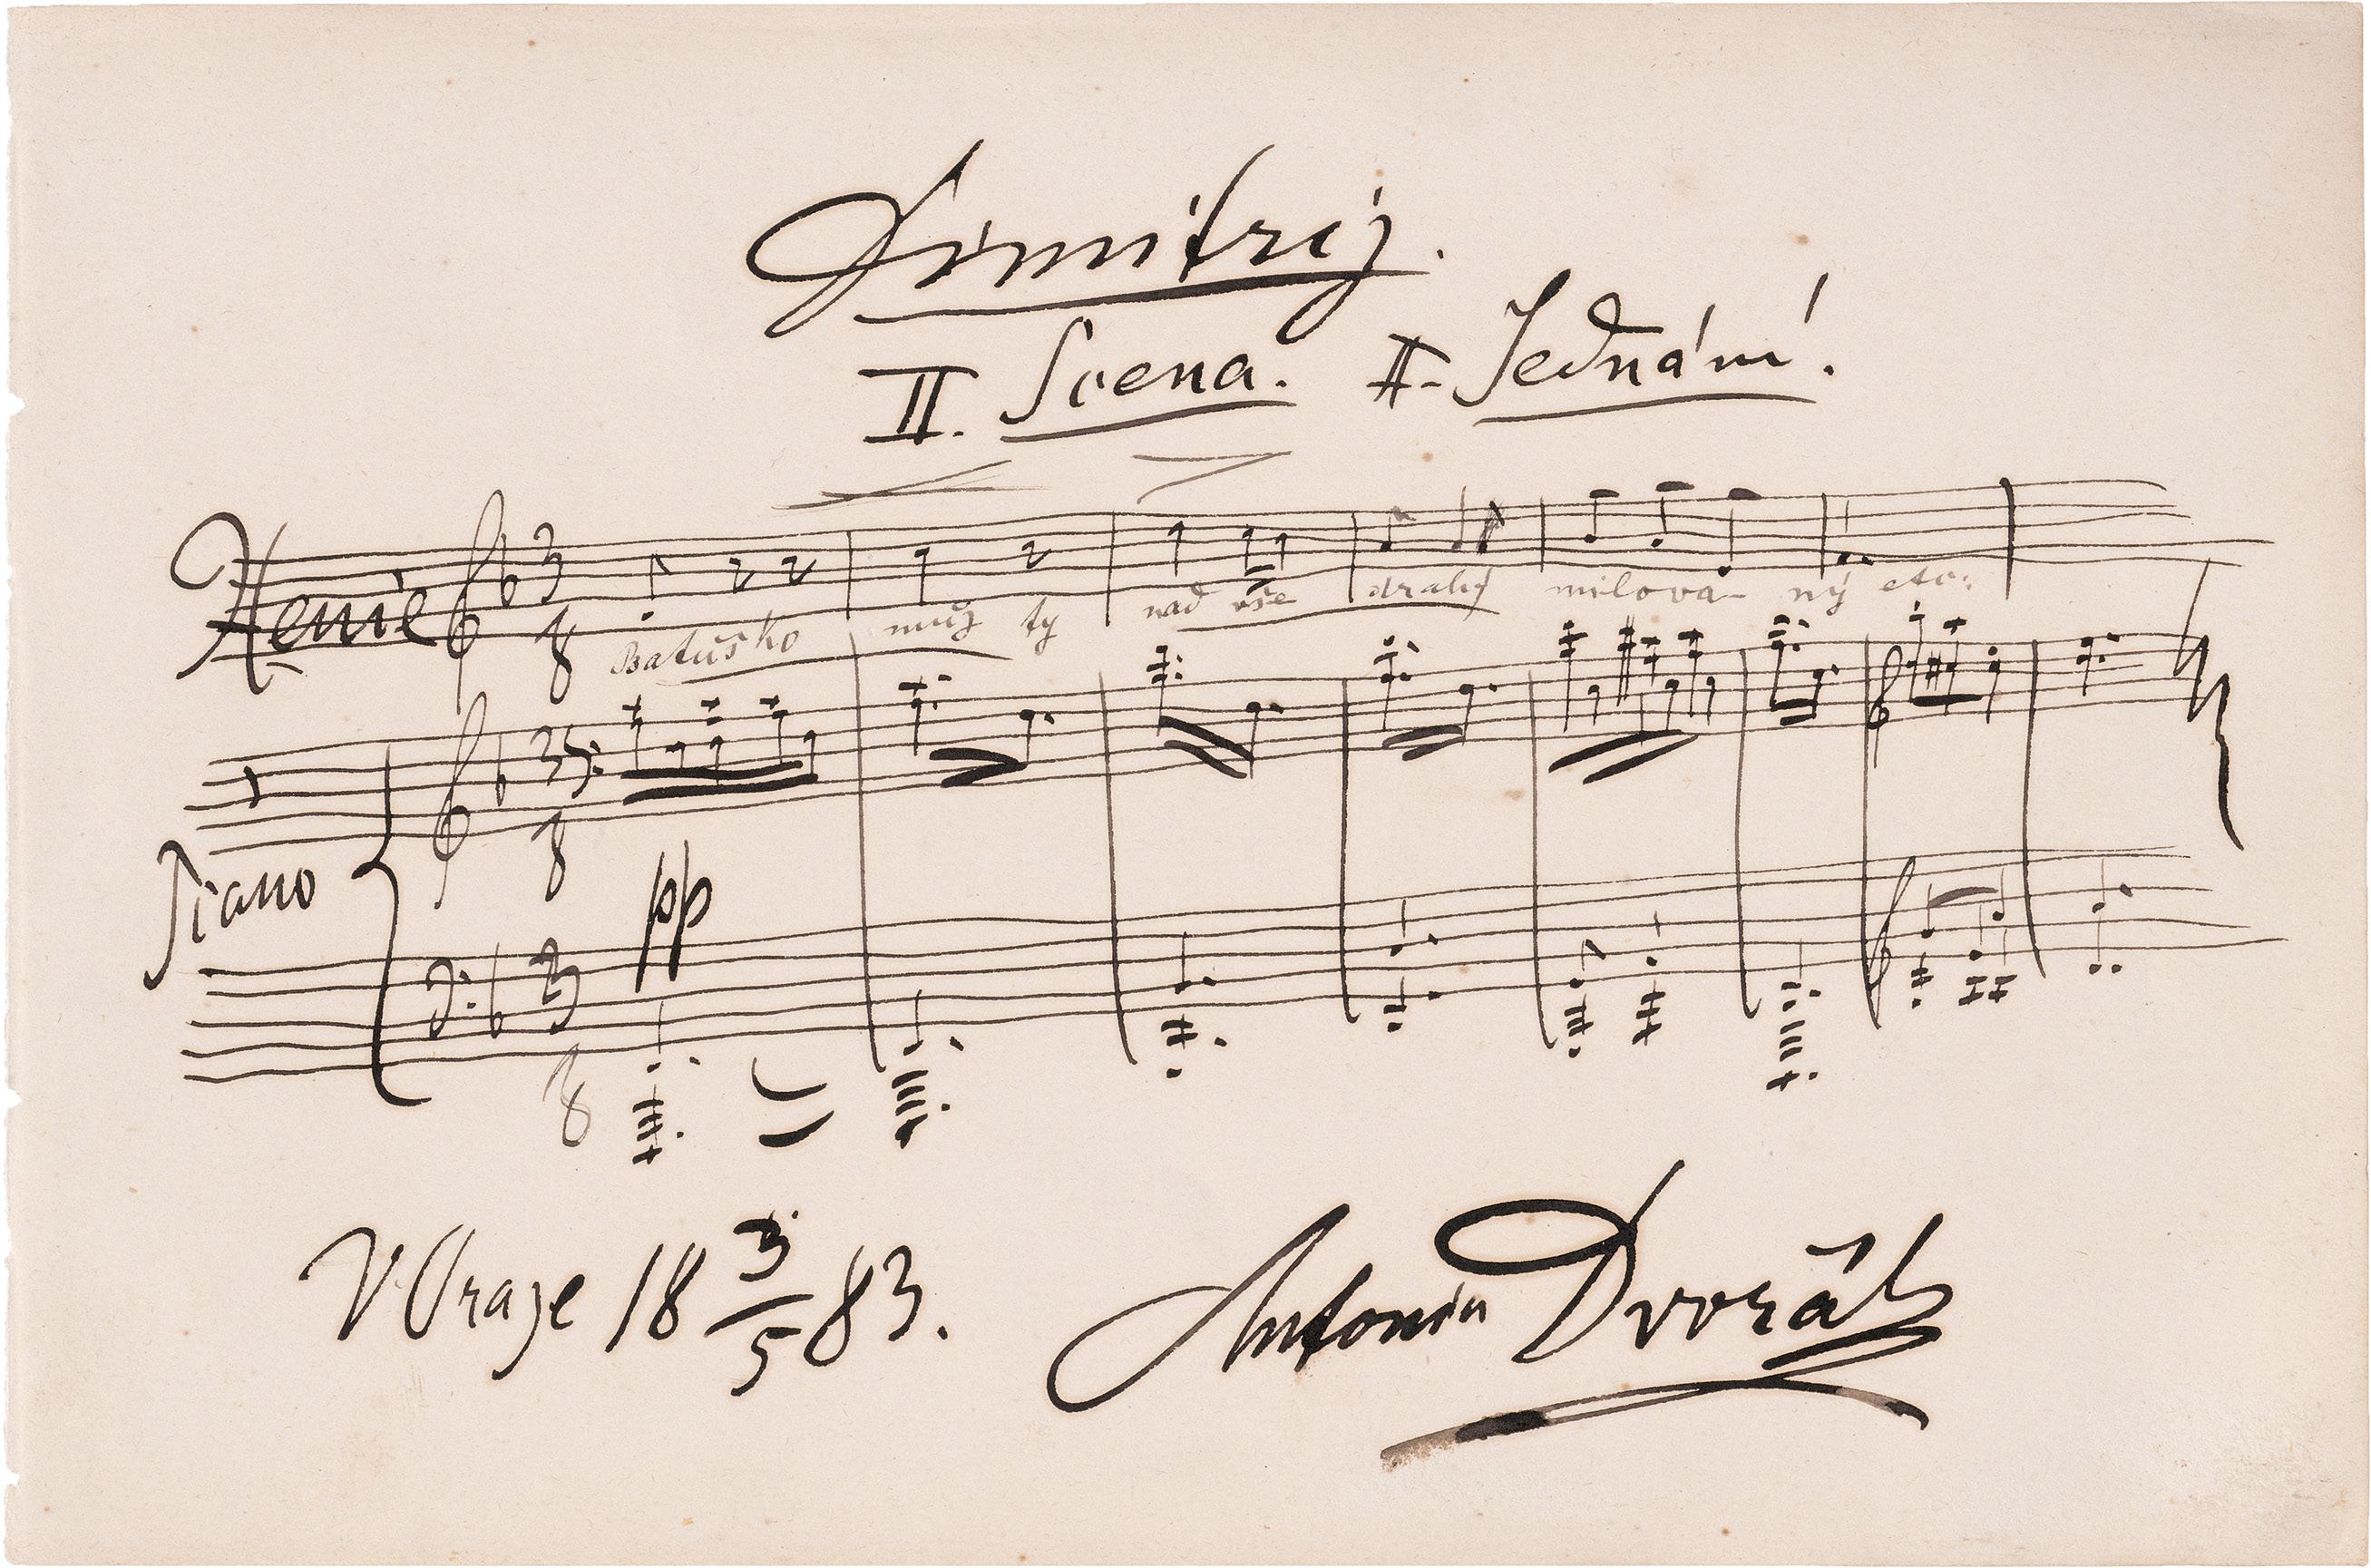 Dimitrij.
II. Scena. II. Jednání.
Xenie 3 8
Batuško můj ty nad vše drahý milova- ný etc:
3 8
Piano pp
3 8
V Praze 18 3/5 83. Antonín Dvořák